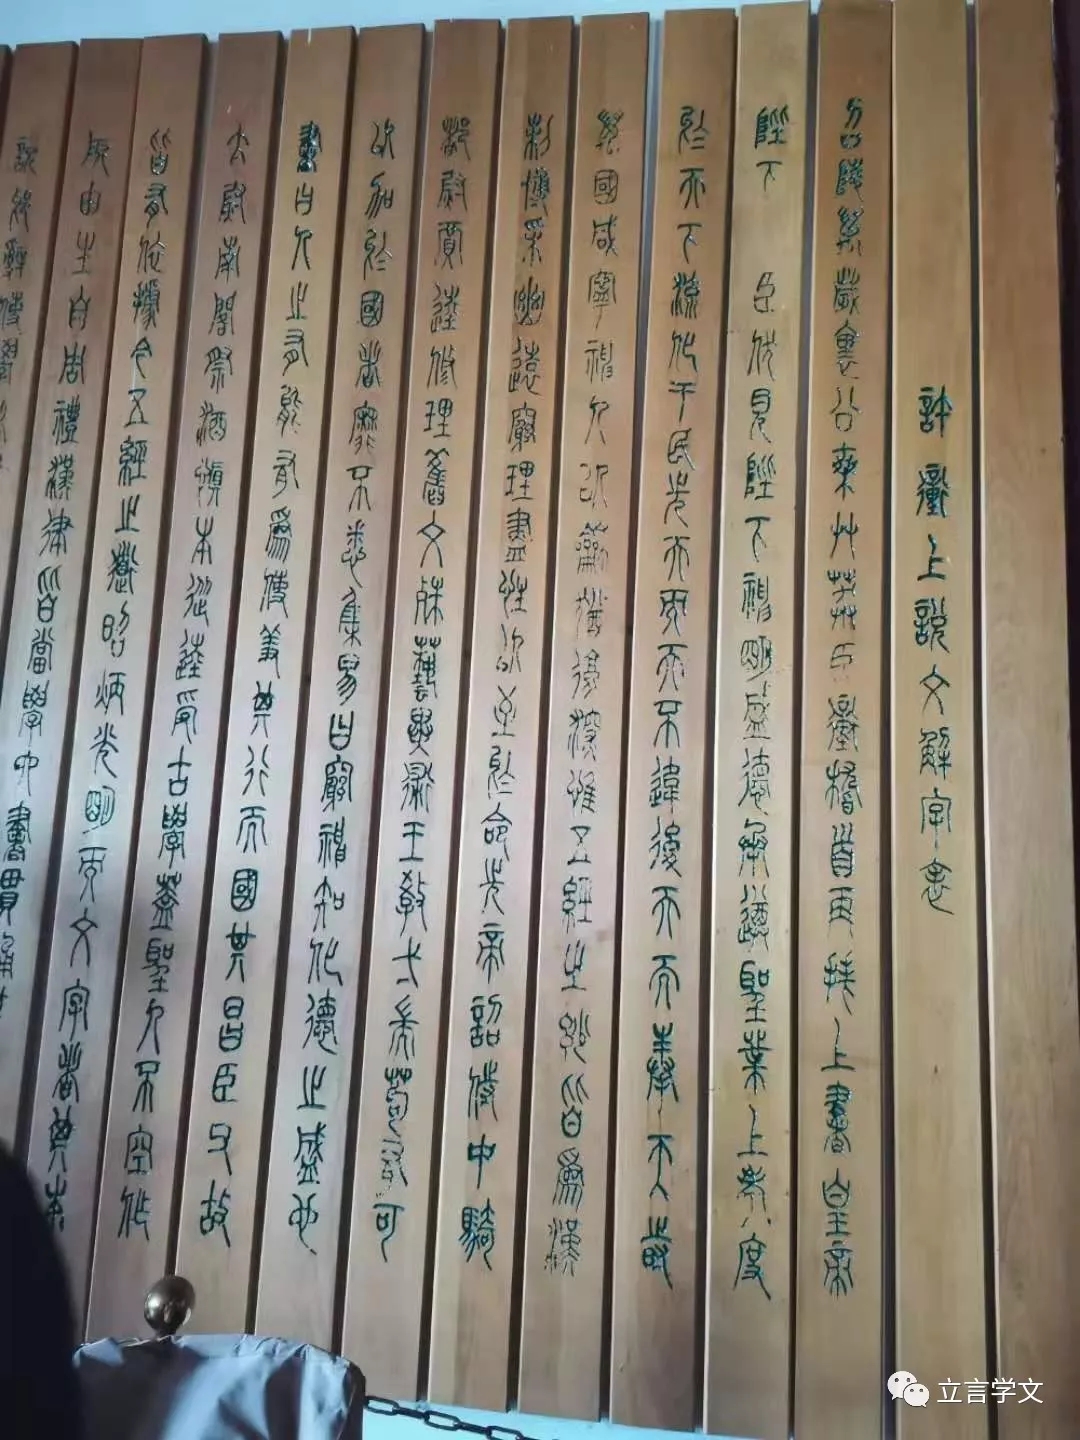 許衝上說文解字表
召陵萬歲里公乘艸莽臣衝稽首再拜上書皇帝
陛下 臣伏見陛下神明盛德承遵聖業上考度
於天下流化于民先天而天不違後天而奉天時
萬國咸寧神人以龢猶復深惟五經之妙皆為漢
制博采幽遠窮理盡性以至於命先帝詔侍中騎
都尉賈逵修理舊文殊藝異術王教一耑苟有可
以加於國者靡不悉集易曰窮神知化德之盛也
書曰人之有能有為使羞其行而國其昌臣父故
太尉南閣祭酒慎本從逵受古學蓋聖人不空作
皆有依據今五經之道昭炳光明而文字者其本
所由生自周禮漢律皆當學六書貫通其
說衺辭使學
立言学文